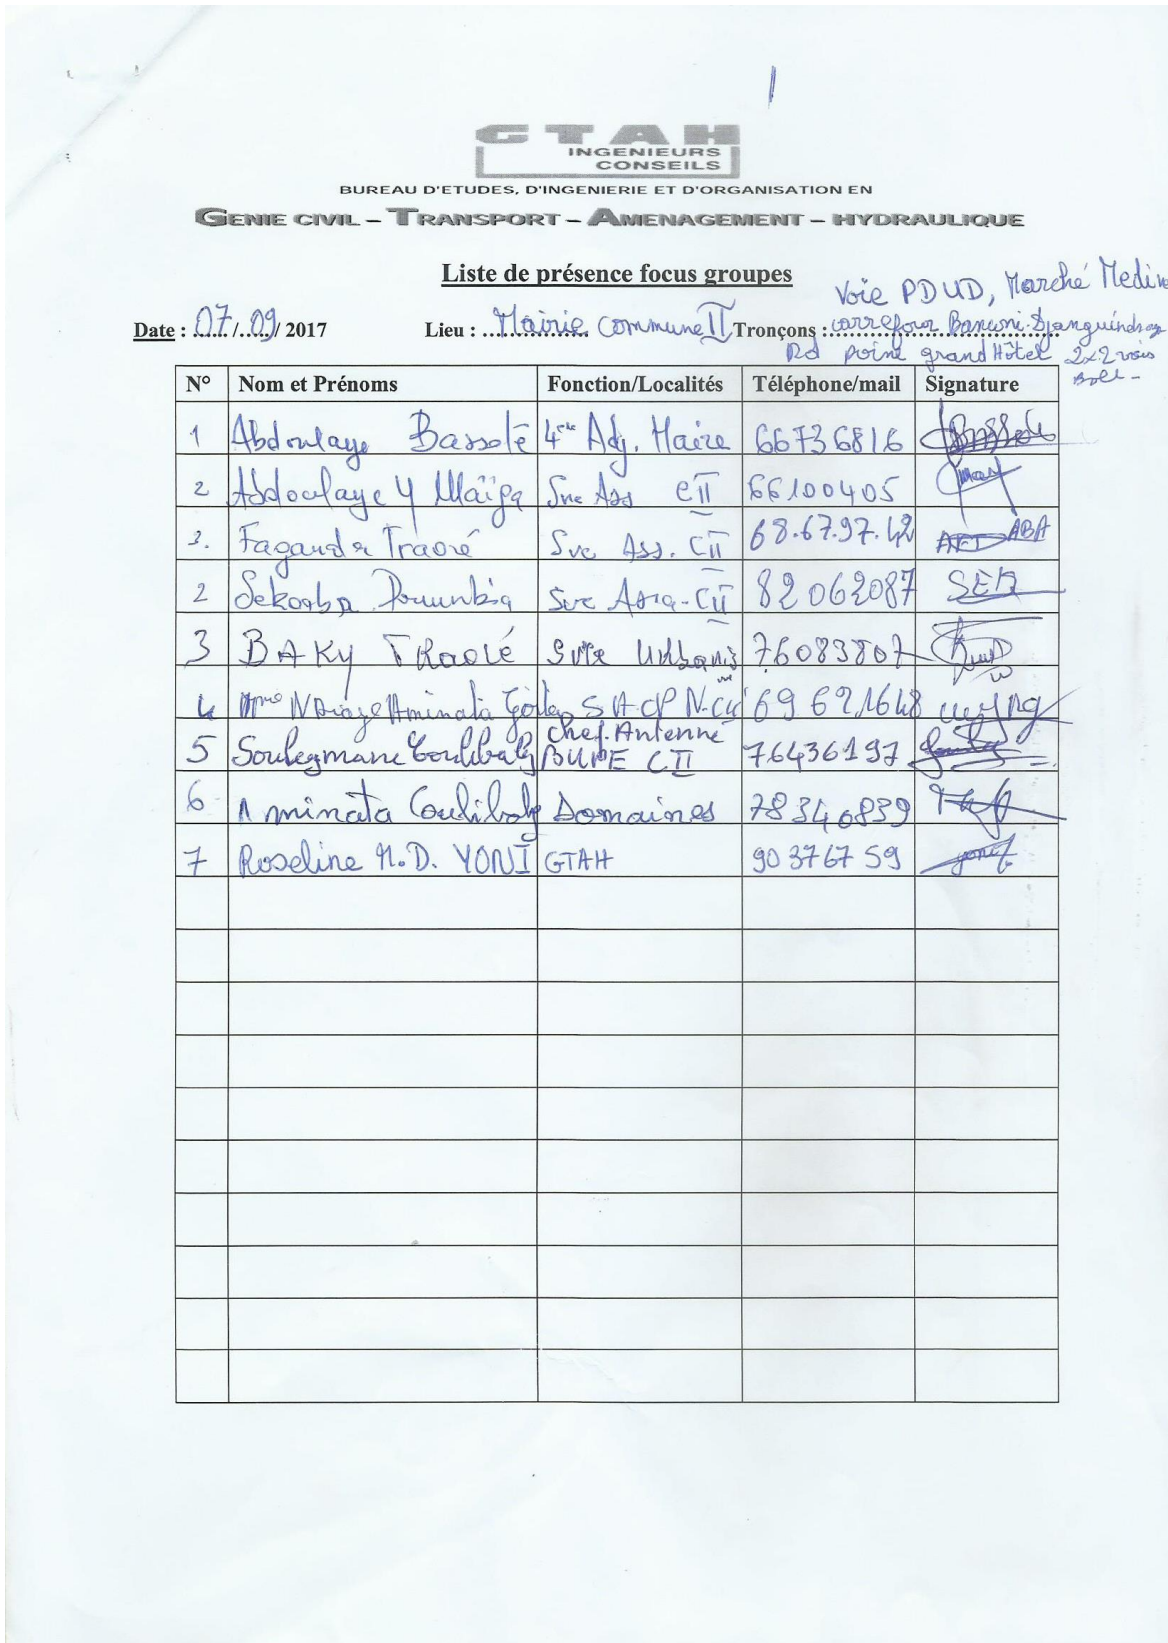 GTAH
INGENIEURS
CONSEILS
BUREAU D'ETUDES, D'INGENIERIE ET D'ORGANISATION EN
GENIE CIVIL – TRANSPORT – AMENAGEMENT – HYDRAULIQUE
Liste de présence focus groupes
Voie PDUD, Marché Medine
Date : 07/09/ 2017 Lieu : Mairie Commune II Tronçons : carrefour Banconi
Rd point grand Hôtel 2x2 voies
N° Nom et Prénoms Fonction/Localités Téléphone/mail Signature
1 Abdoulaye Bassolé 4ème Adj. Maire 66736816
2 Abdoulaye Y Maïga Svc Ass CII 66100405
3. Traoré Svc Ass. CII 68.67.97.42 ABA
2 Doumbia Svc CII 82062087 SEK
3 BAKY TRaoré Svce Urbanis 76083807
4 Mme Aminata 69621648
5 Souleymane Coulibaly Chef. Antenne
CII 76436197
6 Aminata Coulibaly Domaines 78340839
7 Roseline N.D. YONI GTAH 90376759